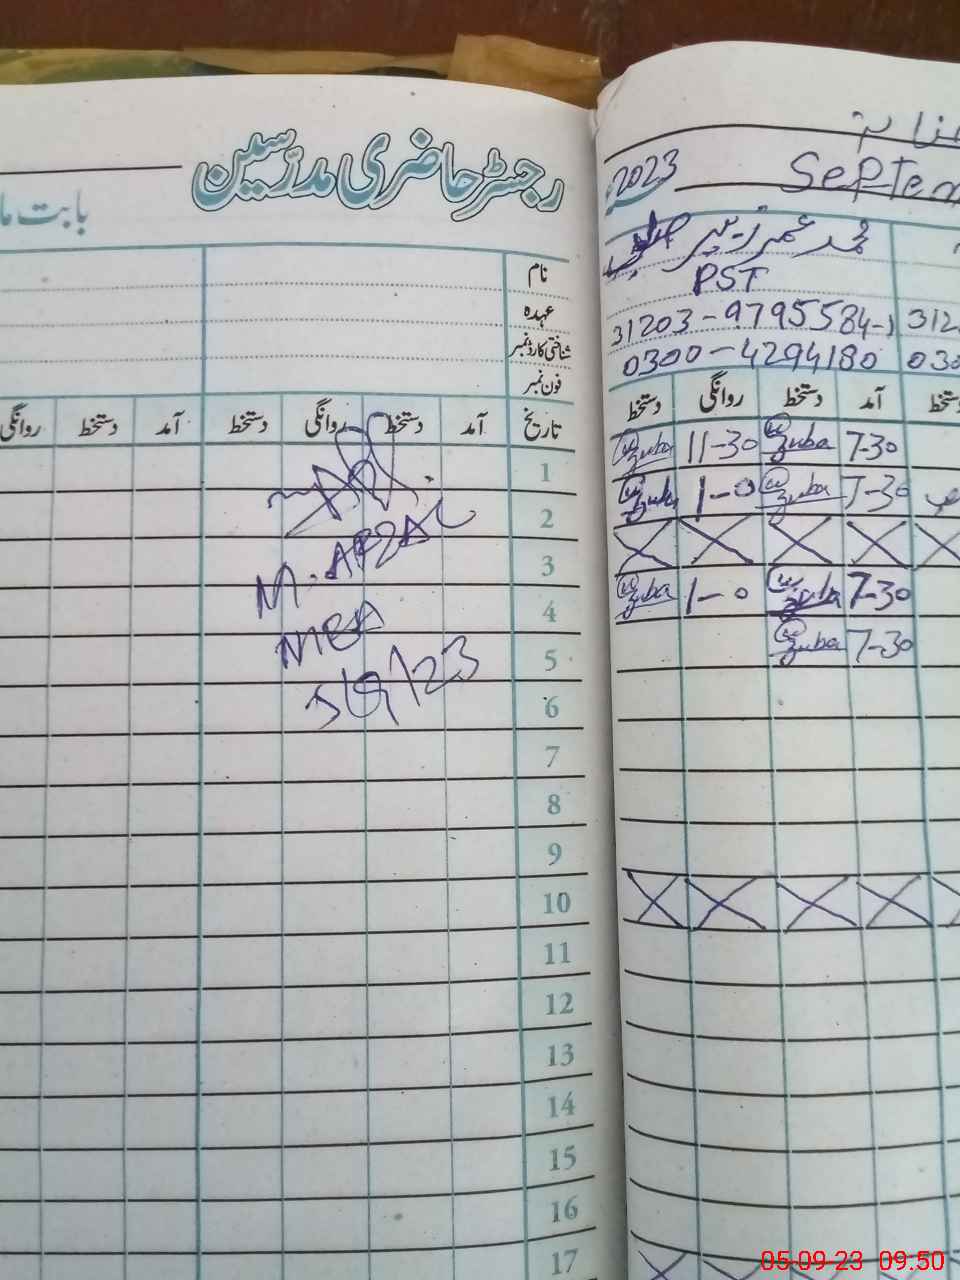 رجسٹر حاضری مدرسین
بابت ما
نام
عہدہ
شناختی کارڈ نمبر
فون نمبر
تاریخ آمد دستخط روانگی دستخط آمد دستخط روانگی
1
2
3
4
5
6
7
8
9
10
11
12
13
14
15
16
17
M. AFZAL
MEA
5/9/23
2023 Septem
محمد عمر زبیر
PST
31203-9795584-1 312
0300-4294180 030
آمد دستخط روانگی دستخط
7-30 Zuba 11-30 Zuba
7-30 Zuba 1-0 Zuba
7-30 Zuba 1-0 Zuba
7-30 Zuba
05-09-23 09.50